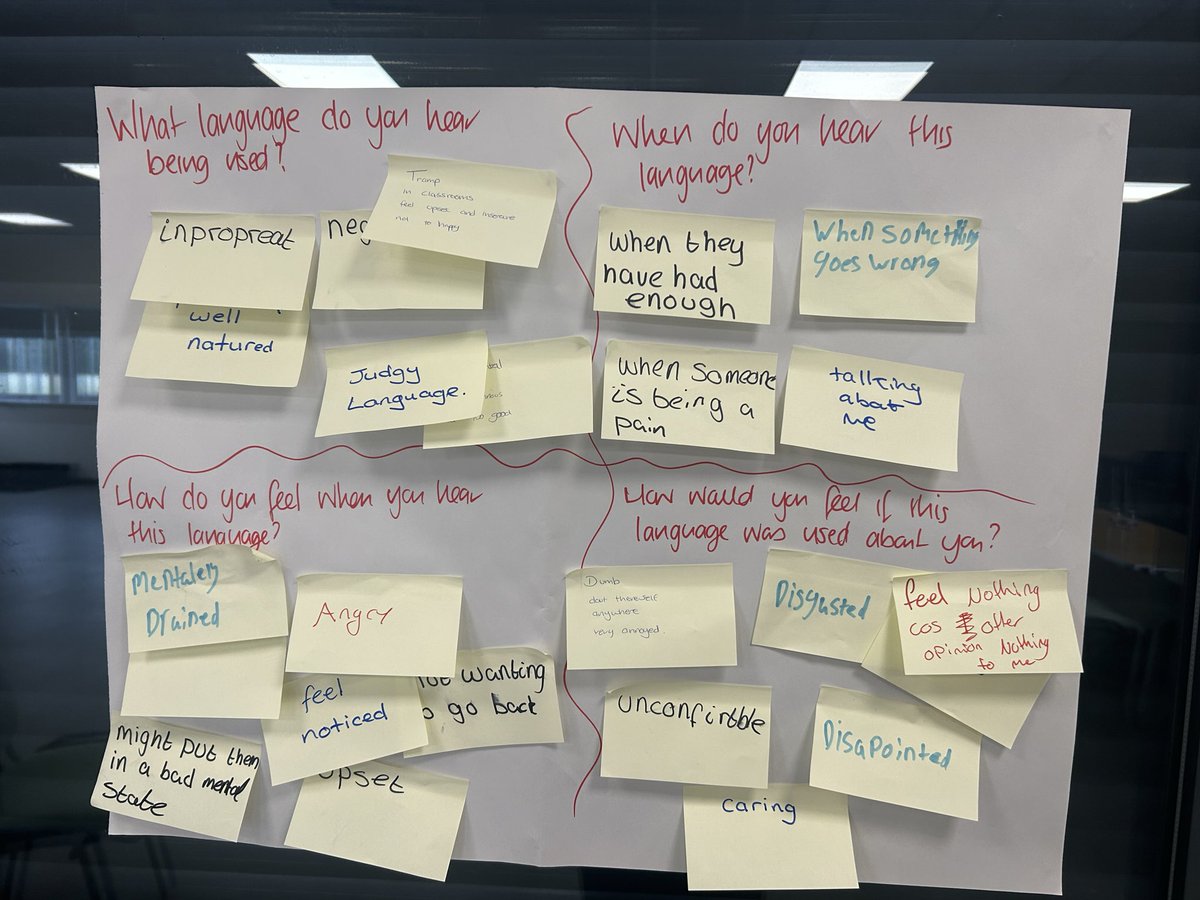 What language do you hear
being used?
inpropreat
neg
Tramp
in classrooms
feel upset and insecure
not to happy
well
natured
Judgy
Language.
good
When do you hear this
language?
when they
have had
enough
When something
goes wrong
when someone
is being a
pain
talking
about
me
How do you feel when you hear
this language?
Mentaley
Drained
Angry
feel
noticed
wanting
go back
might put them
in a bad mental
state
upset
How would you feel if this
language was used about you?
Dumb
anywhere
very annoyed.
Disgusted
feel Nothing
cos other
opinion Nothing
to me
unconfirtble
Disapointed
caring